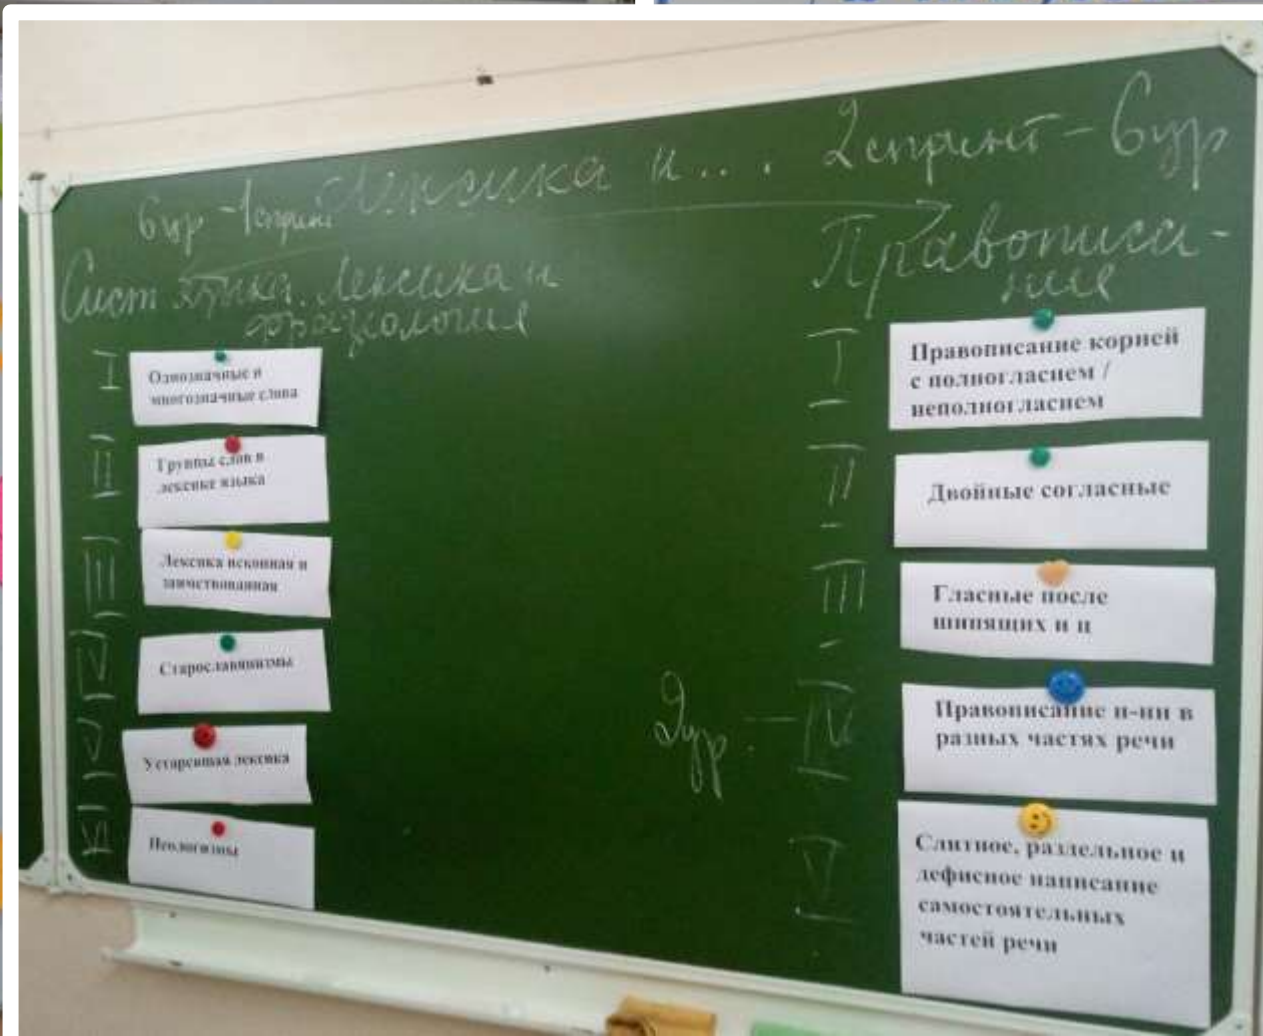 Лексика и....
2 спринт - 6 ур
6 ур - 1 спринт
Лексика и
фразеология
I
Однозначные и
многозначные слова
II
Группы слов в
лексике языка
III
Лексика исконная и
заимствованная
IV
Старославянизмы
V
Устаревшая лексика
VI
Неологизмы
Правописа-
ние
I
Правописание корней
с полногласием /
неполногласием
II
Двойные согласные
III
Гласные после
шипящих и ц
2 ур. - IV
Правописание н-нн в
разных частях речи
V
Слитное, раздельное и
дефисное написание
самостоятельных
частей речи